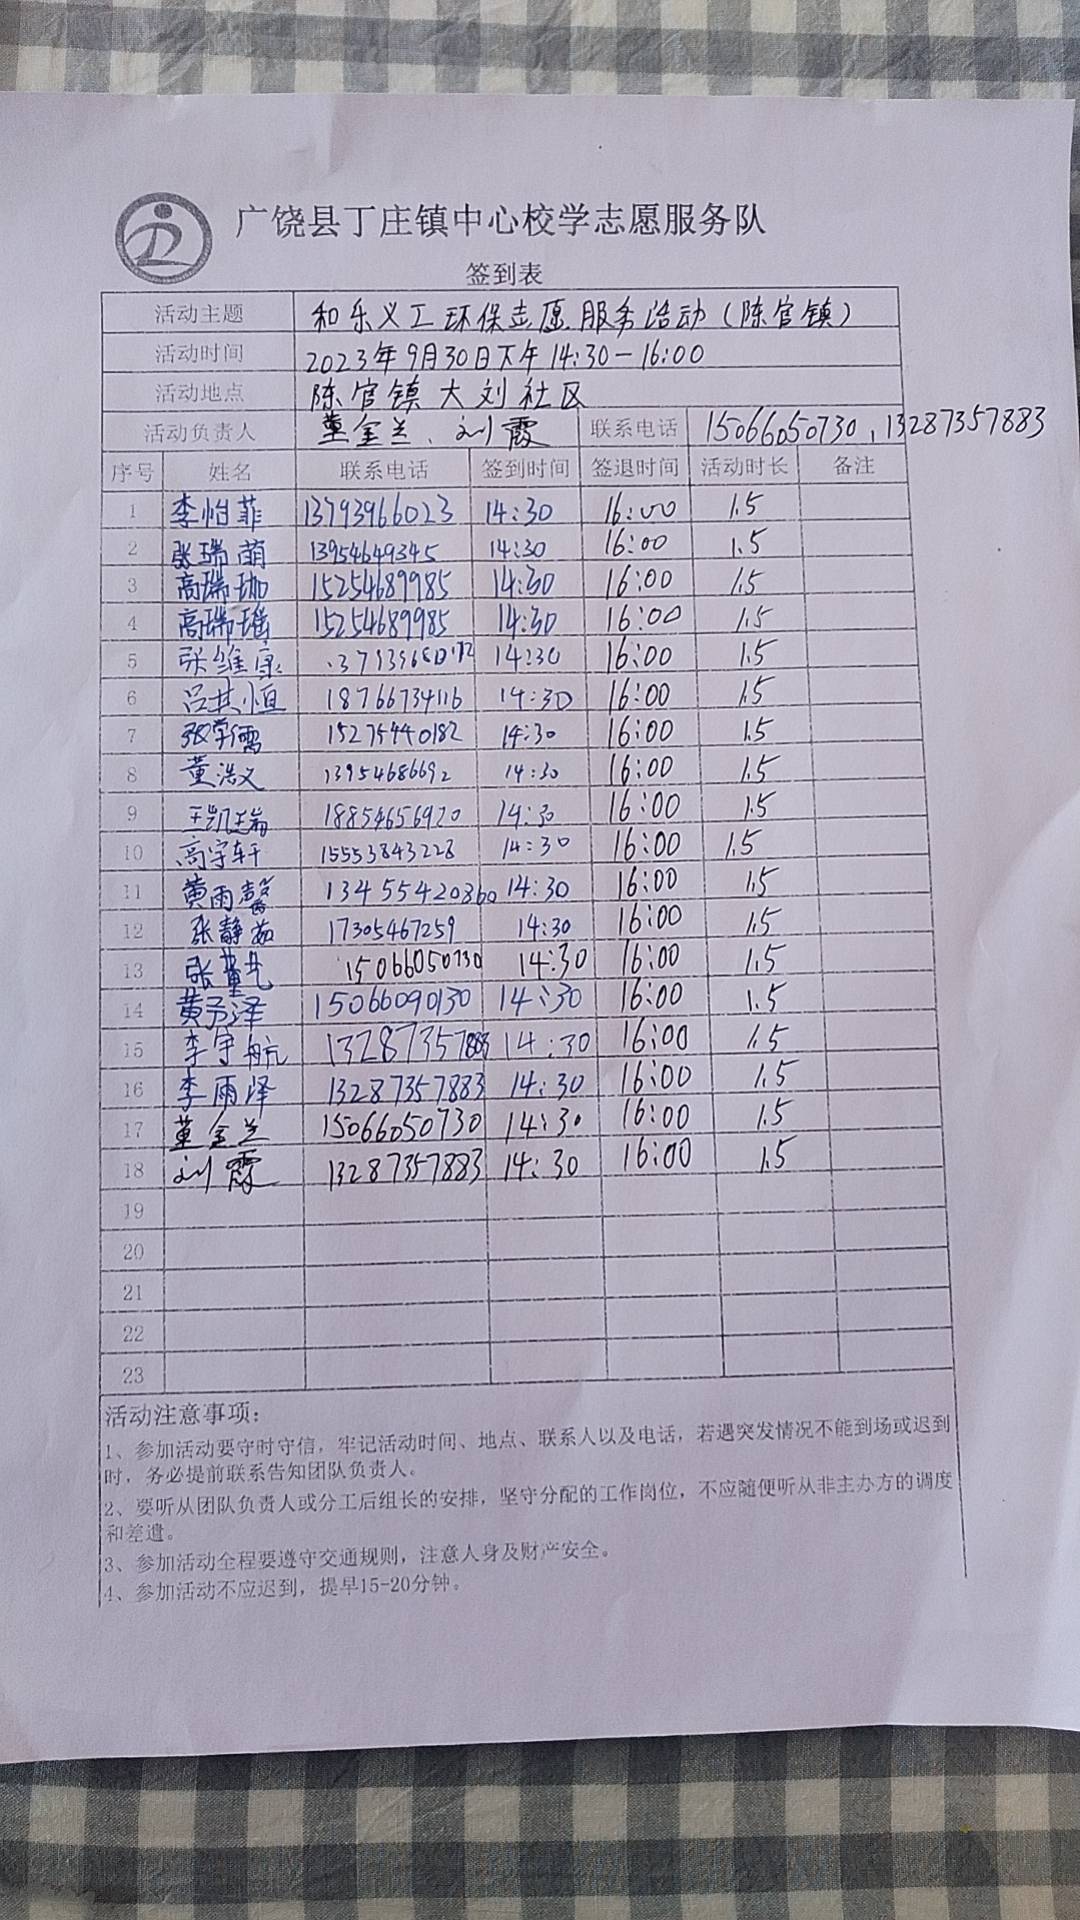 广饶县丁庄镇中心校学志愿服务队
签到表
活动主题 和乐义工环保志愿服务活动(陈官镇)
活动时间 2023年9月30日下午14:30-16:00
活动地点 陈官镇大刘社区
活动负责人 董金兰、刘霞 联系电话 15066050730,13287357883
序号 姓名 联系电话 签到时间 签退时间 活动时长 备注
1 李怡菲 13793966023 14:30 16:00 1.5
2 张瑞萌 13954649345 14:30 16:00 1.5
3 高瑞珈 15254689985 14:30 16:00 1.5
4 高瑞瑶 15254689985 14:30 16:00 1.5
5 张维康 14:30 16:00 1.5
6 吕其恒 18766734116 14:30 16:00 1.5
7 张学儒 15275440182 14:30 16:00 1.5
8 董浩义 13954686692 14:30 16:00 1.5
9 王凯瑞 18854656920 14:30 16:00 1.5
10 高宇轩 15553843228 14:30 16:00 1.5
11 黄雨馨 13455420860 14:30 16:00 1.5
12 张静茹 17305467259 14:30 16:00 1.5
13 15066050730 14:30 16:00 1.5
14 黄予泽 15066090130 14:30 16:00 1.5
15 李宇航 13287357883 14:30 16:00 1.5
16 李雨泽 13287357883 14:30 16:00 1.5
17 董金兰 15066050730 14:30 16:00 1.5
18 刘霞 13287357883 14:30 16:00 1.5
19
20
21
22
23
活动注意事项:
1、参加活动要守时守信,牢记活动时间、地点、联系人以及电话,若遇突发情况不能到场或迟到
时,务必提前联系告知团队负责人。
2、要听从团队负责人或分工后组长的安排,坚守分配的工作岗位,不应随便听从非主办方的调度
和差遣。
3、参加活动全程要遵守交通规则,注意人身及财产安全。
4、参加活动不应迟到,提早15-20分钟。